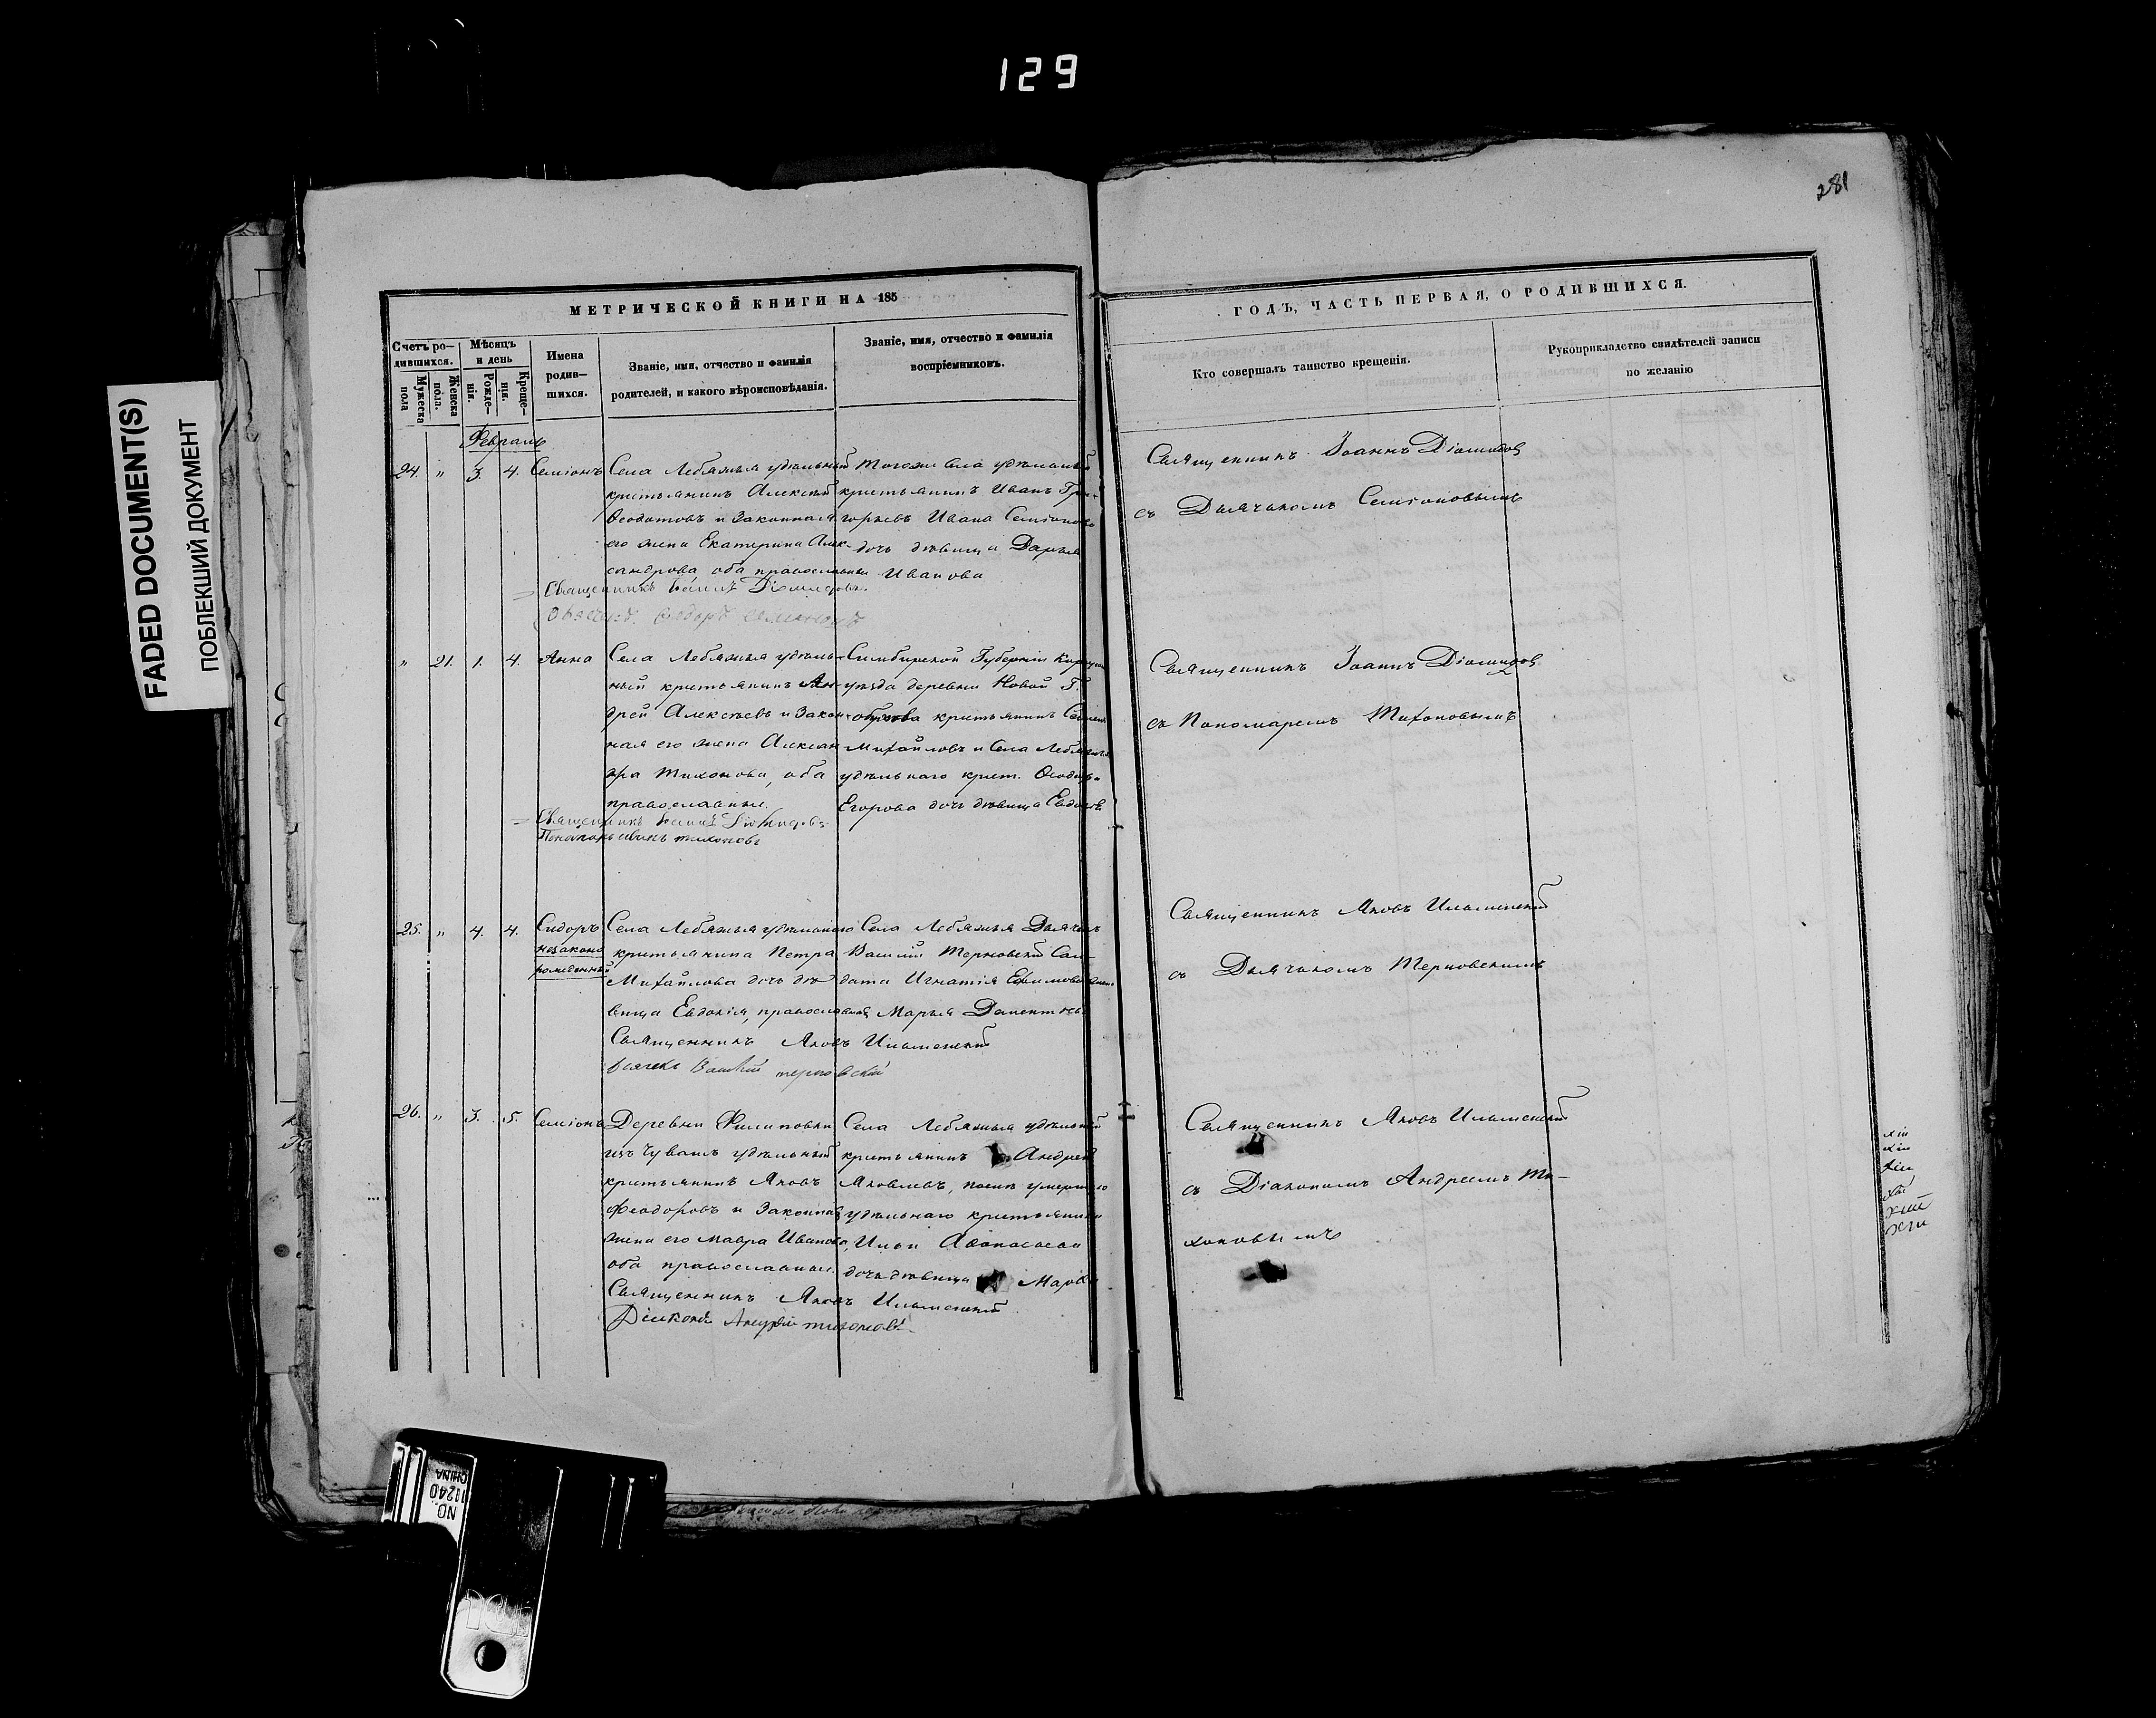 129
281
FADED DOCUMENT(S)
ПОБЛЕКШИЙ ДОКУМЕНТ
МЕТРИЧЕСКОЙ КНИГИ НА 185
Счетъ ро-
дившихся.
Мужеска
пола
Женска
пола.
Мѣсяцъ
и день
Рожде-
нія.
Креще-
нія.
Имена
родив-
шихся.
Званіе, имя, отчество и фамилія
родителей, и какого вѣроисповѣданія.
Званіе, имя, отчество и фамилія
воспріемниковъ.
Февраль
24. " 3. 4. Семіонъ
Села Лебяжья удѣльный
крестьянинъ Алексѣй
Ѳеодотовъ и законная
его жена Екатерина Алек-
сандрова оба православные
Тогоже села удѣльный
крестьянинъ Иванъ Гри-
горьевъ Ивана Семіонова
дочь дѣвица Дарья
Иванова
Священникъ Іоаннъ Діомидовъ
" 21. 1. 4. Анна
Села Лебяжья удѣль-
ный крестьянинъ Ан-
дрей Алексѣевъ и закон-
ная его жена Алексан-
дра Тихонова, оба
православные.
Симбирской Губерніи
уѣзда деревни Новой
крестьянинъ
Михайловъ и Села Лебяжья
удѣльнаго крест. Ѳеодора
Егорова дочь дѣвица
Священникъ Іоаннъ Діомидовъ
Тихоновъ
25. " 4. 4. Сидоръ
незаконо
рожденный
Села Лебяжья удѣльнаго
крестьянина Петра
Михайлова дочь дѣ-
вица Евдокія, православная
Села Лебяжья Дьячекъ
Василій Терновскій Сол-
дата Игнатія Ефимова
Марья
Священникъ Яковъ Ильменскій
Дьячекъ Василій Терновскій
26. " 3. 5. Семіонъ
Деревни Филиповки
изъ Чувашъ удѣльный
крестьянинъ Яковъ
Ѳеодоровъ и законная
жена его Мавра Иванова,
оба православные.
Села Лебяжья удѣльный
крестьянинъ Андрей
Яковлевъ, умершаго
удѣльнаго крестьянина
Ильи Аѳанасьева
дочь дѣвица
Священникъ Яковъ Ильменскій
Діаконъ Андрей Тихоновъ
ГОДЪ, ЧАСТЬ ПЕРВАЯ, О РОДИВШИХСЯ.
Кто совершалъ таинство крещенія.
Рукоприкладство свидѣтелей записи
по желанію
Священникъ Іоаннъ Діомидовъ
съ Дьячкомъ Семіоновымъ
Священникъ Іоаннъ Діомидовъ
съ Пономаремъ Тихоновымъ
Священникъ Яковъ Ильменскій
съ Дьячкомъ Терновскимъ
Священникъ Яковъ Ильменскій
съ Діакономъ Андреемъ Ти-
хоновымъ
NO.
11240
CHINA